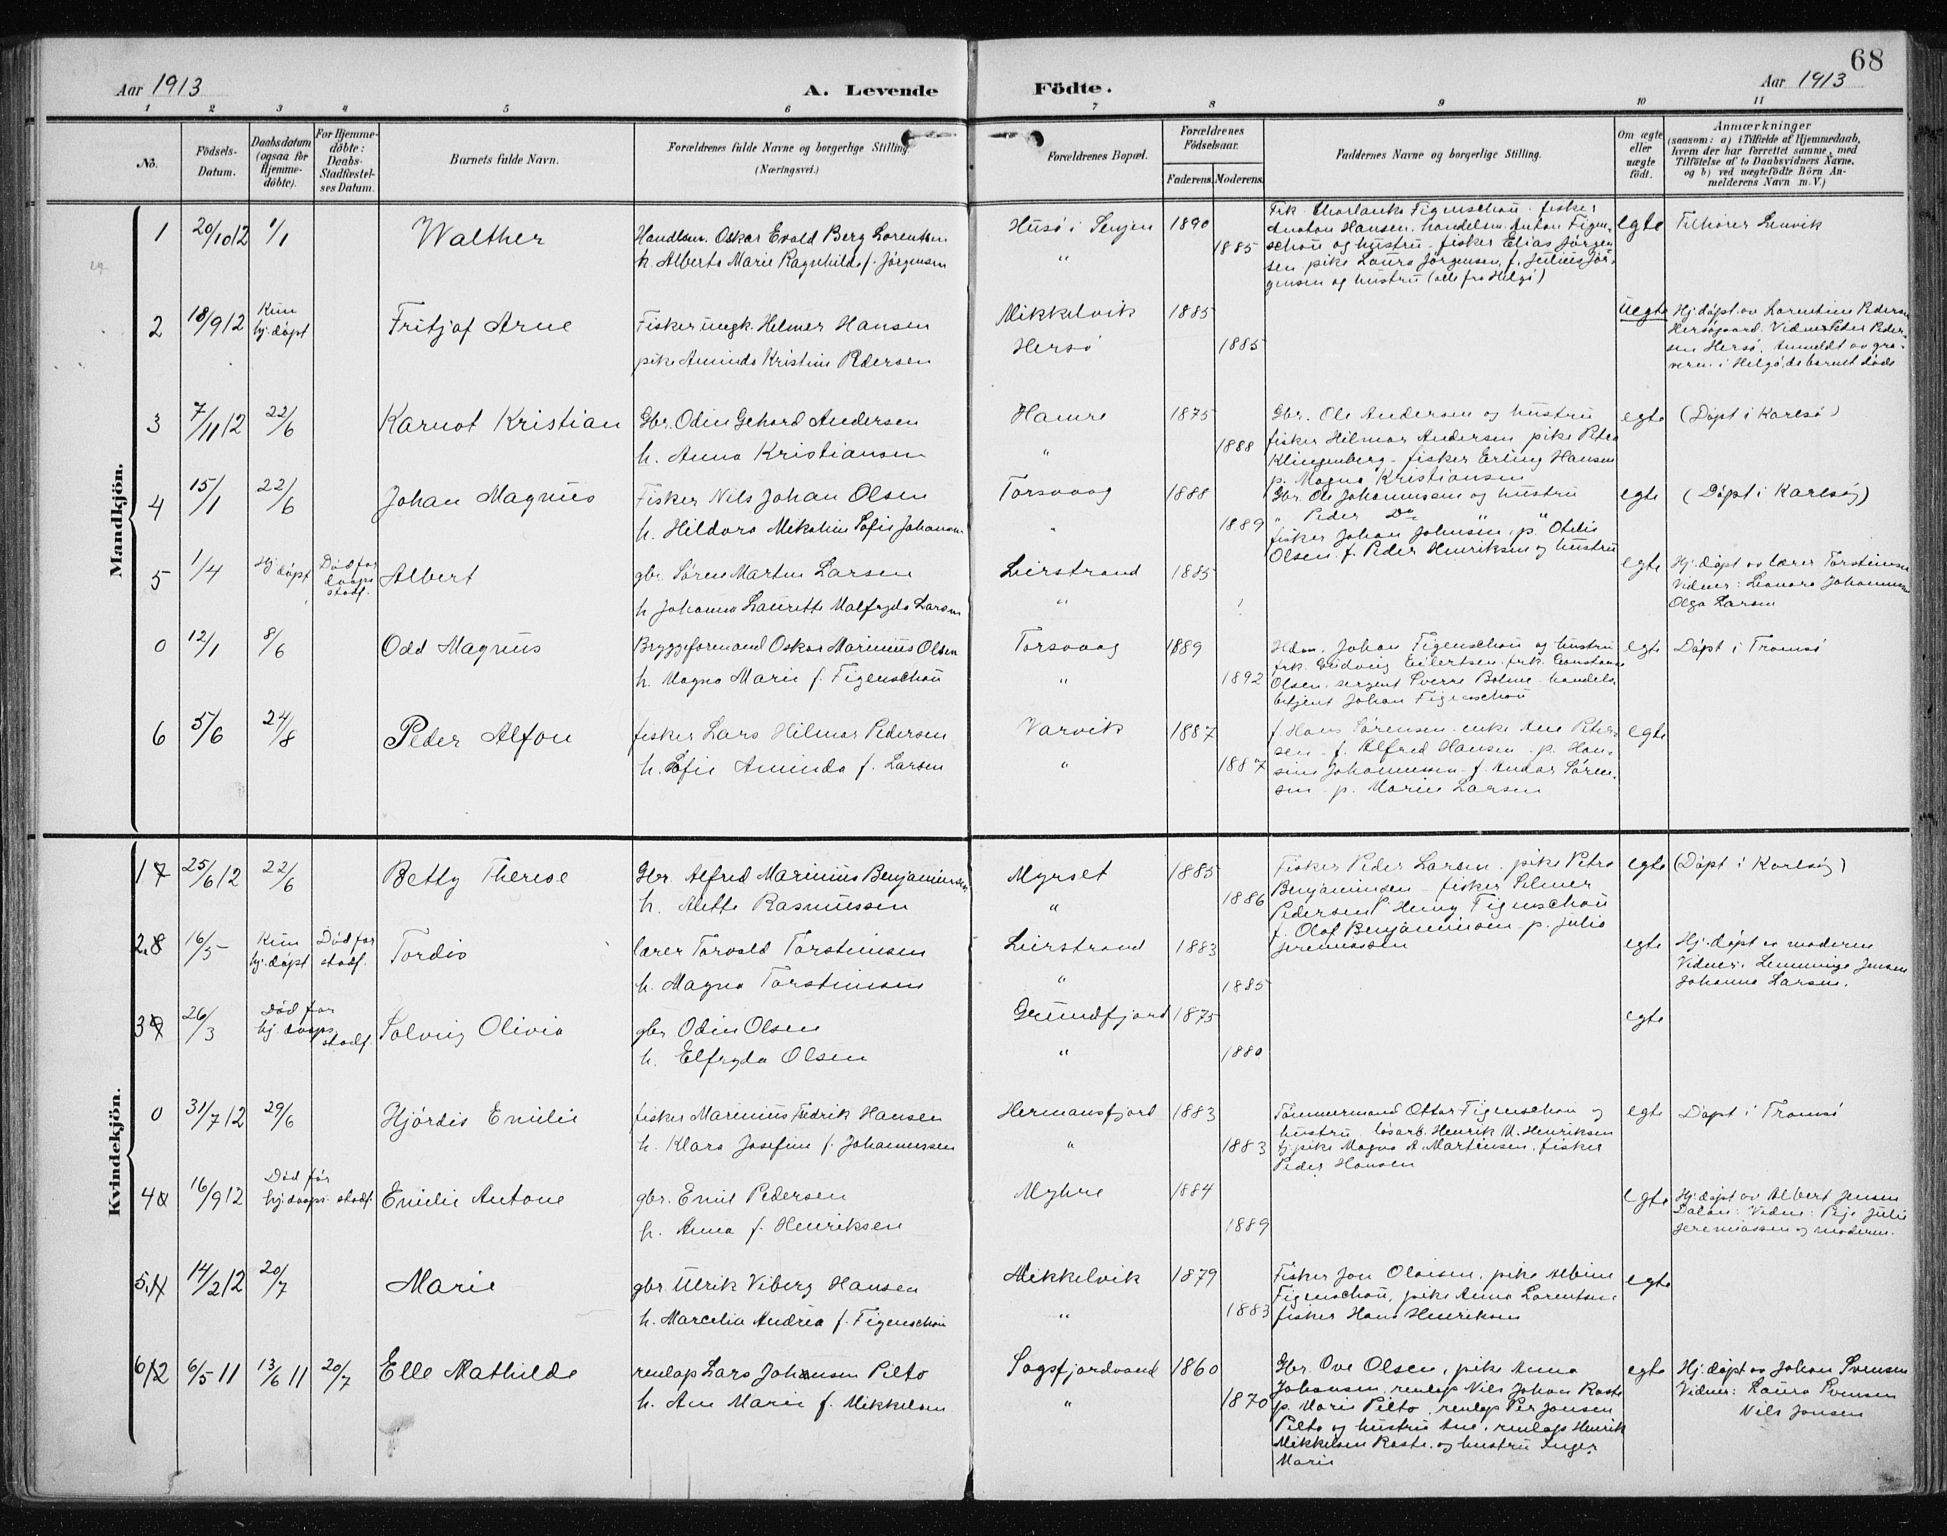 68
Aar 1913 A. Levende Födte. Aar 1913
1 2 3 4 5 6 7 8 9 10 11
No.
Födsels-
Datum.
Daabsdatum
(ogsaa for
Hjemme-
döbte).
For Hjemme-
döbte:
Daabs-
Stadfæstel-
ses Datum.
Barnets fulde Navn.
Forældrenes fulde Navne og borgerlige Stilling
(Næringsvei.)
Forældrenes Bopæl.
Forældrenes
Födselsaar.
Faderens. Moderens.
Faddernes Navne og borgerlige Stilling.
Om ægte
eller
uægte
födt.
Anmærkninger
(saasom: a) i Tilfælde af Hjemmedaab,
hvem der har forrettet samme, med
Tilföielse af to Daabsvidners Navne,
og b) ved uægtefödte Börn An-
melderens Navn m. V.)
Mandkjön.
1 20/10 12 1/1 Walther
Handlsm. Oskar Evald Berg Lorentsen
h. Alberte Marie Ragnhilds f. Jörgensen
Husö i Senjen 1890
" 1885
Frk. Figenschou. fisker
Anoton Hansen. handelsm. Anton Figen-
schou og hustru. fisker Elias Jörgen-
sen pike Laura Jörgensen. f. Julius Jör-
gensen og hustru (alle fra Helgö)
egte Tilhörer Lenvik
2 18/9 12 Kun
hj.döpt Fritjof Arne
Fisker ungk. Helmer Hansen
pike Aminda Kristine Pedersen
Mikkelvik 1885
Hersö 1885
uegte
Hj.döpt av Lorentine Pedersen
Hersögaard. Vidner Peder Peder-
sen Hersö. Anmeldt av gra-
veren i Helgö, da barnet döde
3 7/11 12 22/6 Karnot Kristian
Gbr. Odin Gehard Andersen
h. Anna Kristiansen
Hamre 1875
" 1888
Gbr. Ole Andersen og hustru
fisker Hilmar Andersen pike Petra
Klingenberg - fisker Erling Hansen
p. Magna Kristiansen
egte (Döpt i Karlsö)
4 15/1 22/6 Johan Magnus
Fisker Nils Johan Olsen
h. Hildora Mikaline Sofie Johansen
Torsvaag 1888
" 1889
Gbr. Ole Johannesen og hustru
" Peder Do "
fisker Johan Johnsen, p. Otelie
Olsen. f. Peder Henriksen og hustru
egte (Döpt i Karlsöy)
5 1/4 Hj.döpt Död før
daaps
stadf. Albert
gbr. Sören Martin Larsen
h. Johanna Laurette Malfryda Larsen
Leirstrand 1885
" ?
egte
Hj.döpt av lærer Torsteinsen
Vidner: Leonora Johannesen
Olga Larsen
0 12/1 8/6 Odd Magnus
Bryggeformand Oskar Marinius Olsen
h. Magna Marie f. Figenschou
Torsvaag 1889
" 1892
Hdm. Johan Figenschou og hustru
frk. Gudvig Eilertsen. frk. Constanse
Olsen. sergent Sverre Bolme - handels
betjent Johan Figenschou
egte Döpt i Tromsö
6 5/6 24/8 Peder Alfon
fisker Lars Hilmar Pedersen
h. Sofie Aminda f. Larsen
Varvik 1887
" 1887
f. Hans Sörensen - enke Ane Peter-
sen - f. Alfred Hansen - p. Han-
sine Johannessen - f. Andar Sören-
sen - p. Marie Larsen
egte
Kvindekjön.
1 7 25/6 12 22/6 Betty Therese
Gbr. Alfred Marinius Benjaminsen
h. Alette Rasmussen
Myrset 1885
" 1886
Fisker Peder Larsen - pike Petra
Benjaminsen - fisker Selmer
Pedersen Henny Figenschou
f. Olaf Benjaminsen p. Julie
Jeremiassen
egte (Döpt i Karlsöy)
2.8 16/5 Kun
hj.döpt Död før
stadf. Tordis
lærer Torvald Torsteinsen
h. Magna Torsteinsen
Leirstrand 1883
" 1885
egte
Hj.döpt av moderen
Vidner: Lemminge Jensen
Johanna Larsen.
3 9 26/3 Död før
hj.daaps
stadf. Solveig Olivia
gbr Odin Olsen
h. Elfryda Olsen
Grundfjord 1875
" 1880
egte
0 31/7 12 29/6 Hjördis Emilie
fisker Marinius Fredrik Hansen
h. Klara Josefine f. Johannessen
Hermansfjord 1883
" 1883
Tömmermand Ottar Figenschou og
hustru. lösarb. Henrik M. Henriksen
tj.pike Magna A Martinsen. fisker
Peder Hansen
egte Döpt i Tromsö
4 16/9 12 Död før
hj.daaps stadf. Emilie Antone
gbr. Emil Pedersen
h. Anna f. Henriksen
Myhre 1884
" 1889
egte
Hj.döpt av Albert Jensen
Dalan: Vidner: Julie
Jeremiassen og moderen.
5.11 14/2 12 20/7 Marie
gbr. Ulrik Viberg Hansen
h. Marcelia Andrea f. Figenschou
Mikkelvik 1879
" 1883
Fisker Jon Olaisen, pike Albine
Figenschou, pike Anna Lorentsen
fisker Hans Henriksen
egte
6 12 6/5 11 13/6 11 20/7 Elle Mathilde
renlap Lars Johansen Pilto
h. Ane Marie f. Mikkelsen
Sagfjordvand 1860
" 1870
Gbr. Ove Olsen, pike Anna
Johansen. renlap Nils Johan Rasta
p. Maris Pilto, renlap Per Jonsen
Pilto og hustru Ane, renlap Henrik
Mikkelsen Rasta, og hustru Inger
Marie
egte
Hj.döpt av Johan Svensen
Vidner: Laura Svensen
Nils Jonsen